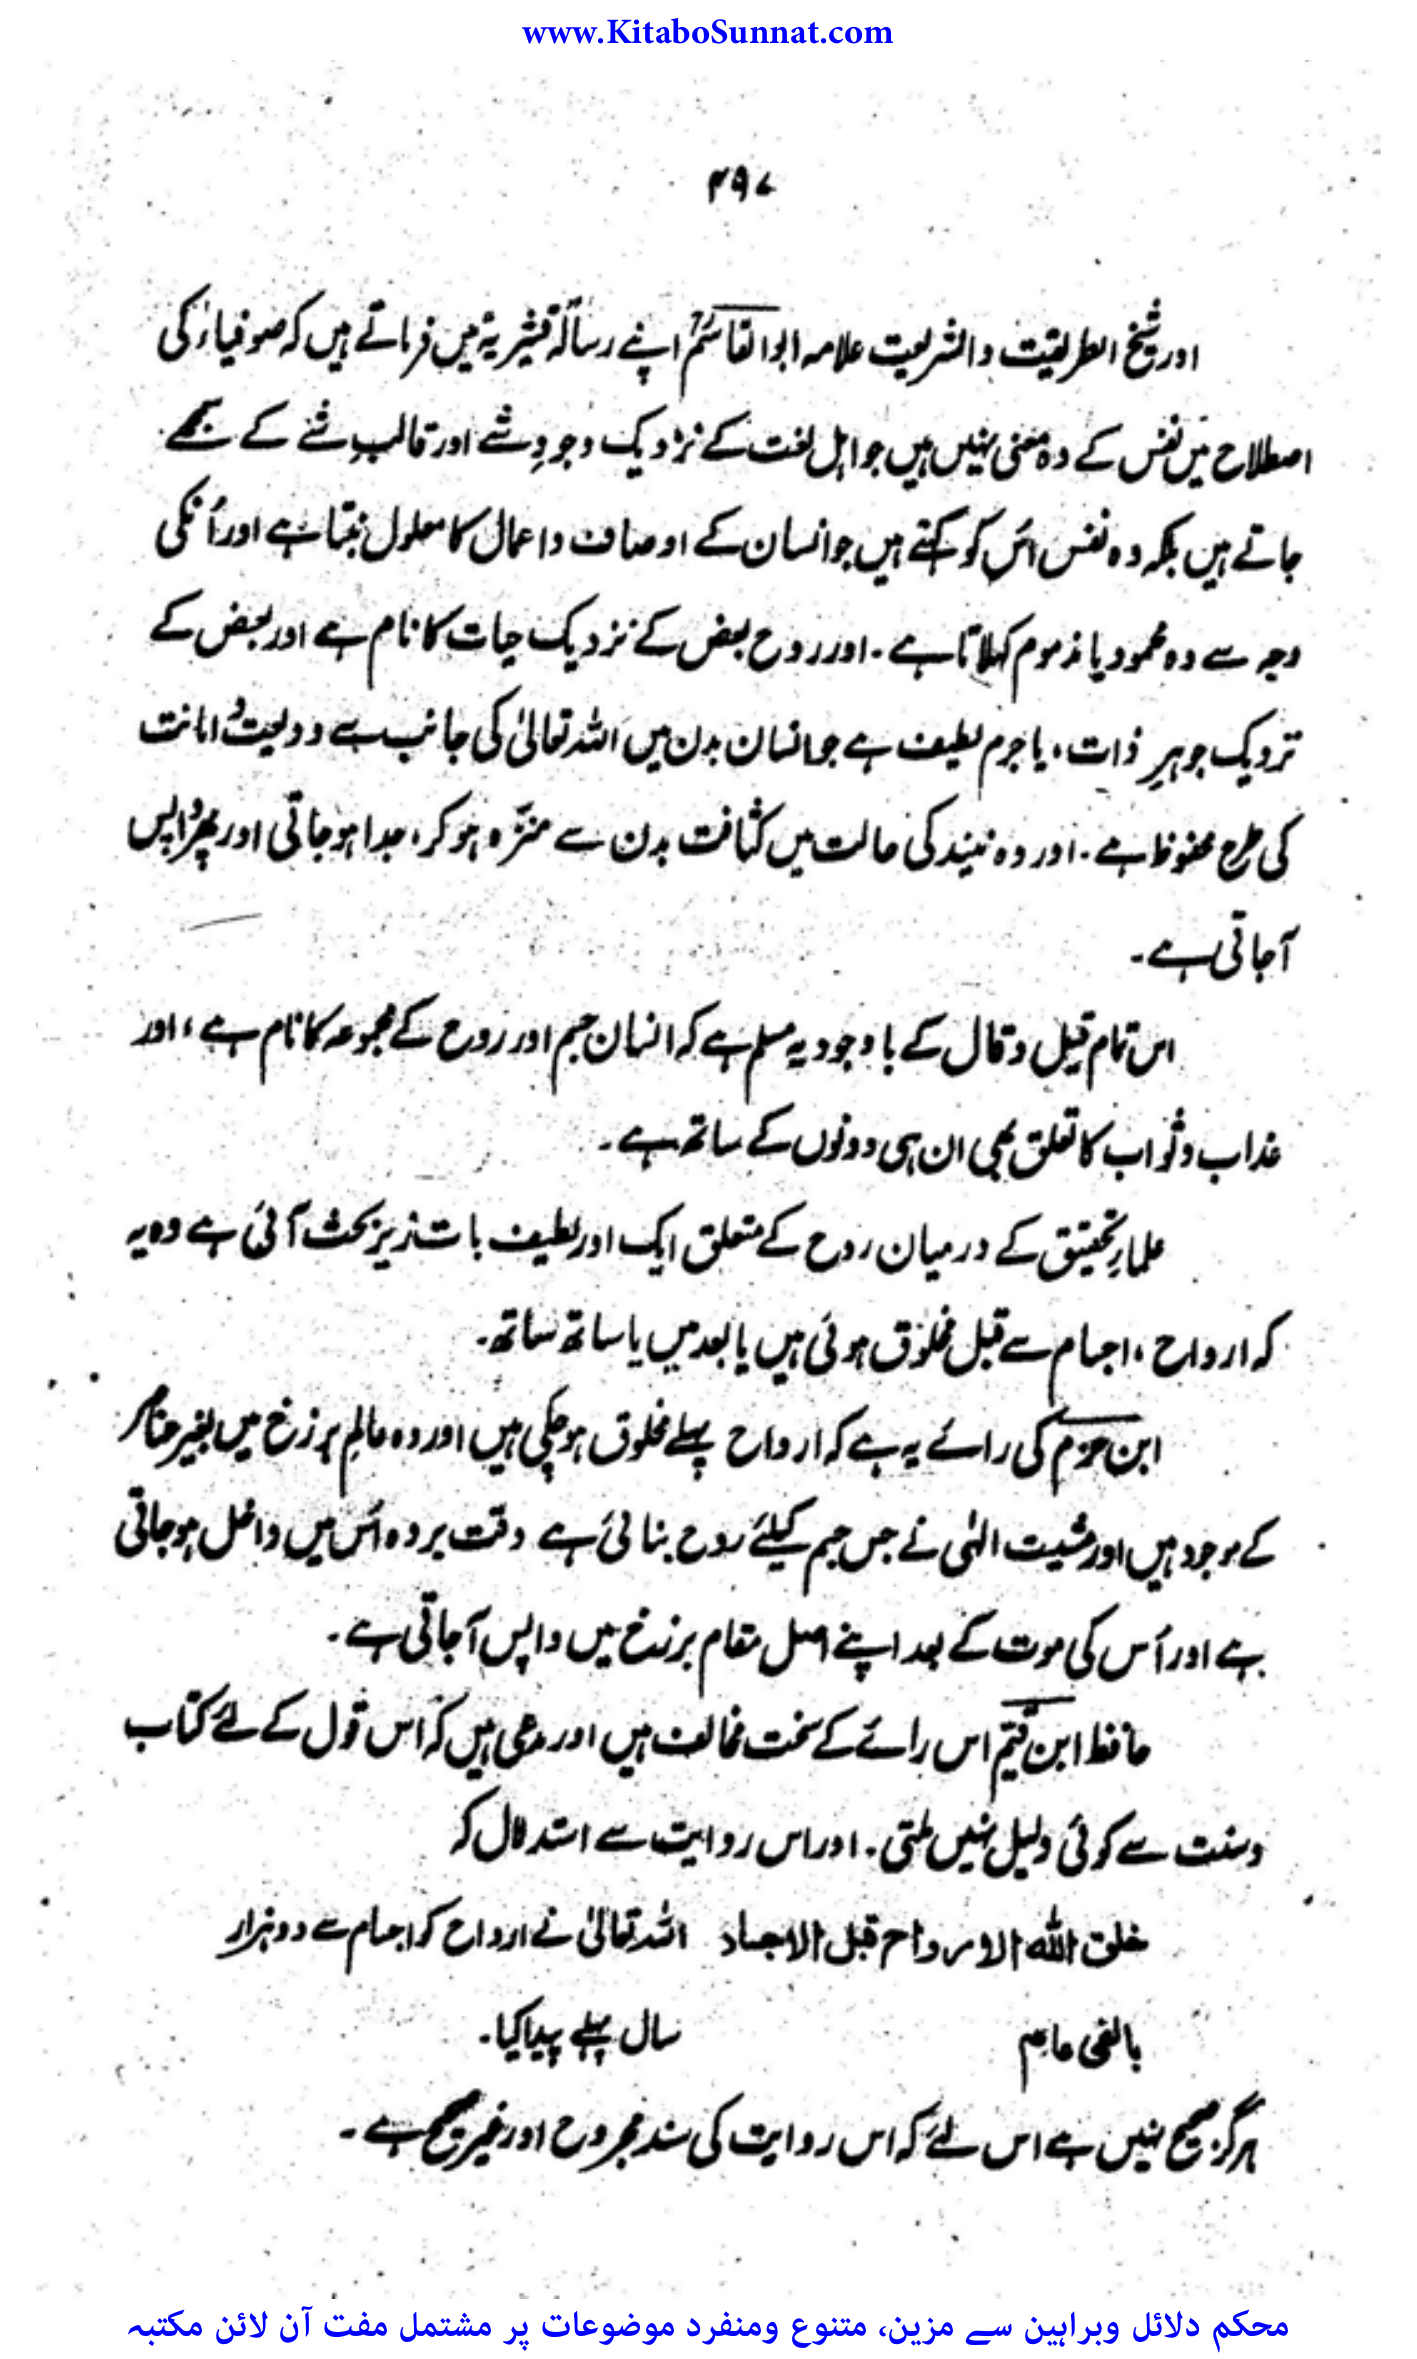 www.KitaboSunnat.com
۴۹۷
اور شیخ الطریقیت والشریعیت علامہ ابوالقاسمؒ اپنے رسالۂ قشیریۃ میں فرماتے ہیں کہ صوفیاء کی
اصطلاح میں نفس کے وہ معنی نہیں ہیں جو اہل لغت کے نزدیک وجودِ شے اور قالبِ شے کے سمجھے
جاتے ہیں بلکہ وہ نفس اُس کو کہتے ہیں جو انسان کے اوصاف و اعمال کا معلول بنتا ہے اور اُنکی
وجہ سے وہ محمود یا مذموم کہلاتا ہے۔ اور روح بعض کے نزدیک حیات کا نام ہے اور بعض کے
نزدیک جوہرِ ذات، یا جرم لطیف ہے جو انسان بدن میں اللہ تعالیٰ کی جانب سے ودیعت و امانت
کی طرح محفوظ ہے۔ اور وہ نیند کی حالت میں کثافت بدن سے منزّہ ہو کر، جدا ہو جاتی اور پھر واپس
آجاتی ہے۔
اس تمام قیل و قال کے باوجود یہ مسلم ہے کہ انسان جسم اور روح کے مجموعہ کا نام ہے، اور
عذاب و ثواب کا تعلق بھی ان ہی دونوں کے ساتھ ہے۔
علمارِ تحقیق کے درمیان روح کے متعلق ایک اور لطیف بات زیر بحث آئی ہے وہ یہ
کہ ارواح، اجسام سے قبل مخلوق ہوئی ہیں یا بعد میں یا ساتھ ساتھ۔
ابن حزم کی رائے یہ ہے کہ ارواح پہلے مخلوق ہو چکی ہیں اور وہ عالمِ برزخ میں بغیر عناصر
کے موجود ہیں اور مشیت الٰہی نے جس جسم کیلئے روح بنائی ہے وقت پر وہ اُس میں داخل ہو جاتی
ہے اور اُس کی موت کے بعد اپنے اصل مقام برزخ میں واپس آجاتی ہے۔
حافظ ابن قیم اس رائے کے سخت مخالف ہیں اور مدعی ہیں کہ اس قول کے لئے کتاب
و سنت سے کوئی دلیل نہیں ملتی۔ اور اس روایت سے استدلال کہ
خلق اللہ الارواح قبل الاجساد اللہ تعالیٰ نے ارواح کو اجسام سے دو ہزار
بالفی عام سال پہلے پیدا کیا۔
ہرگز صحیح نہیں ہے اس لئے کہ اس روایت کی سند مجروح اور غیر صحیح ہے۔
محکم دلائل وبراہین سے مزین، متنوع ومنفرد موضوعات پر مشتمل مفت آن لائن مکتبہ